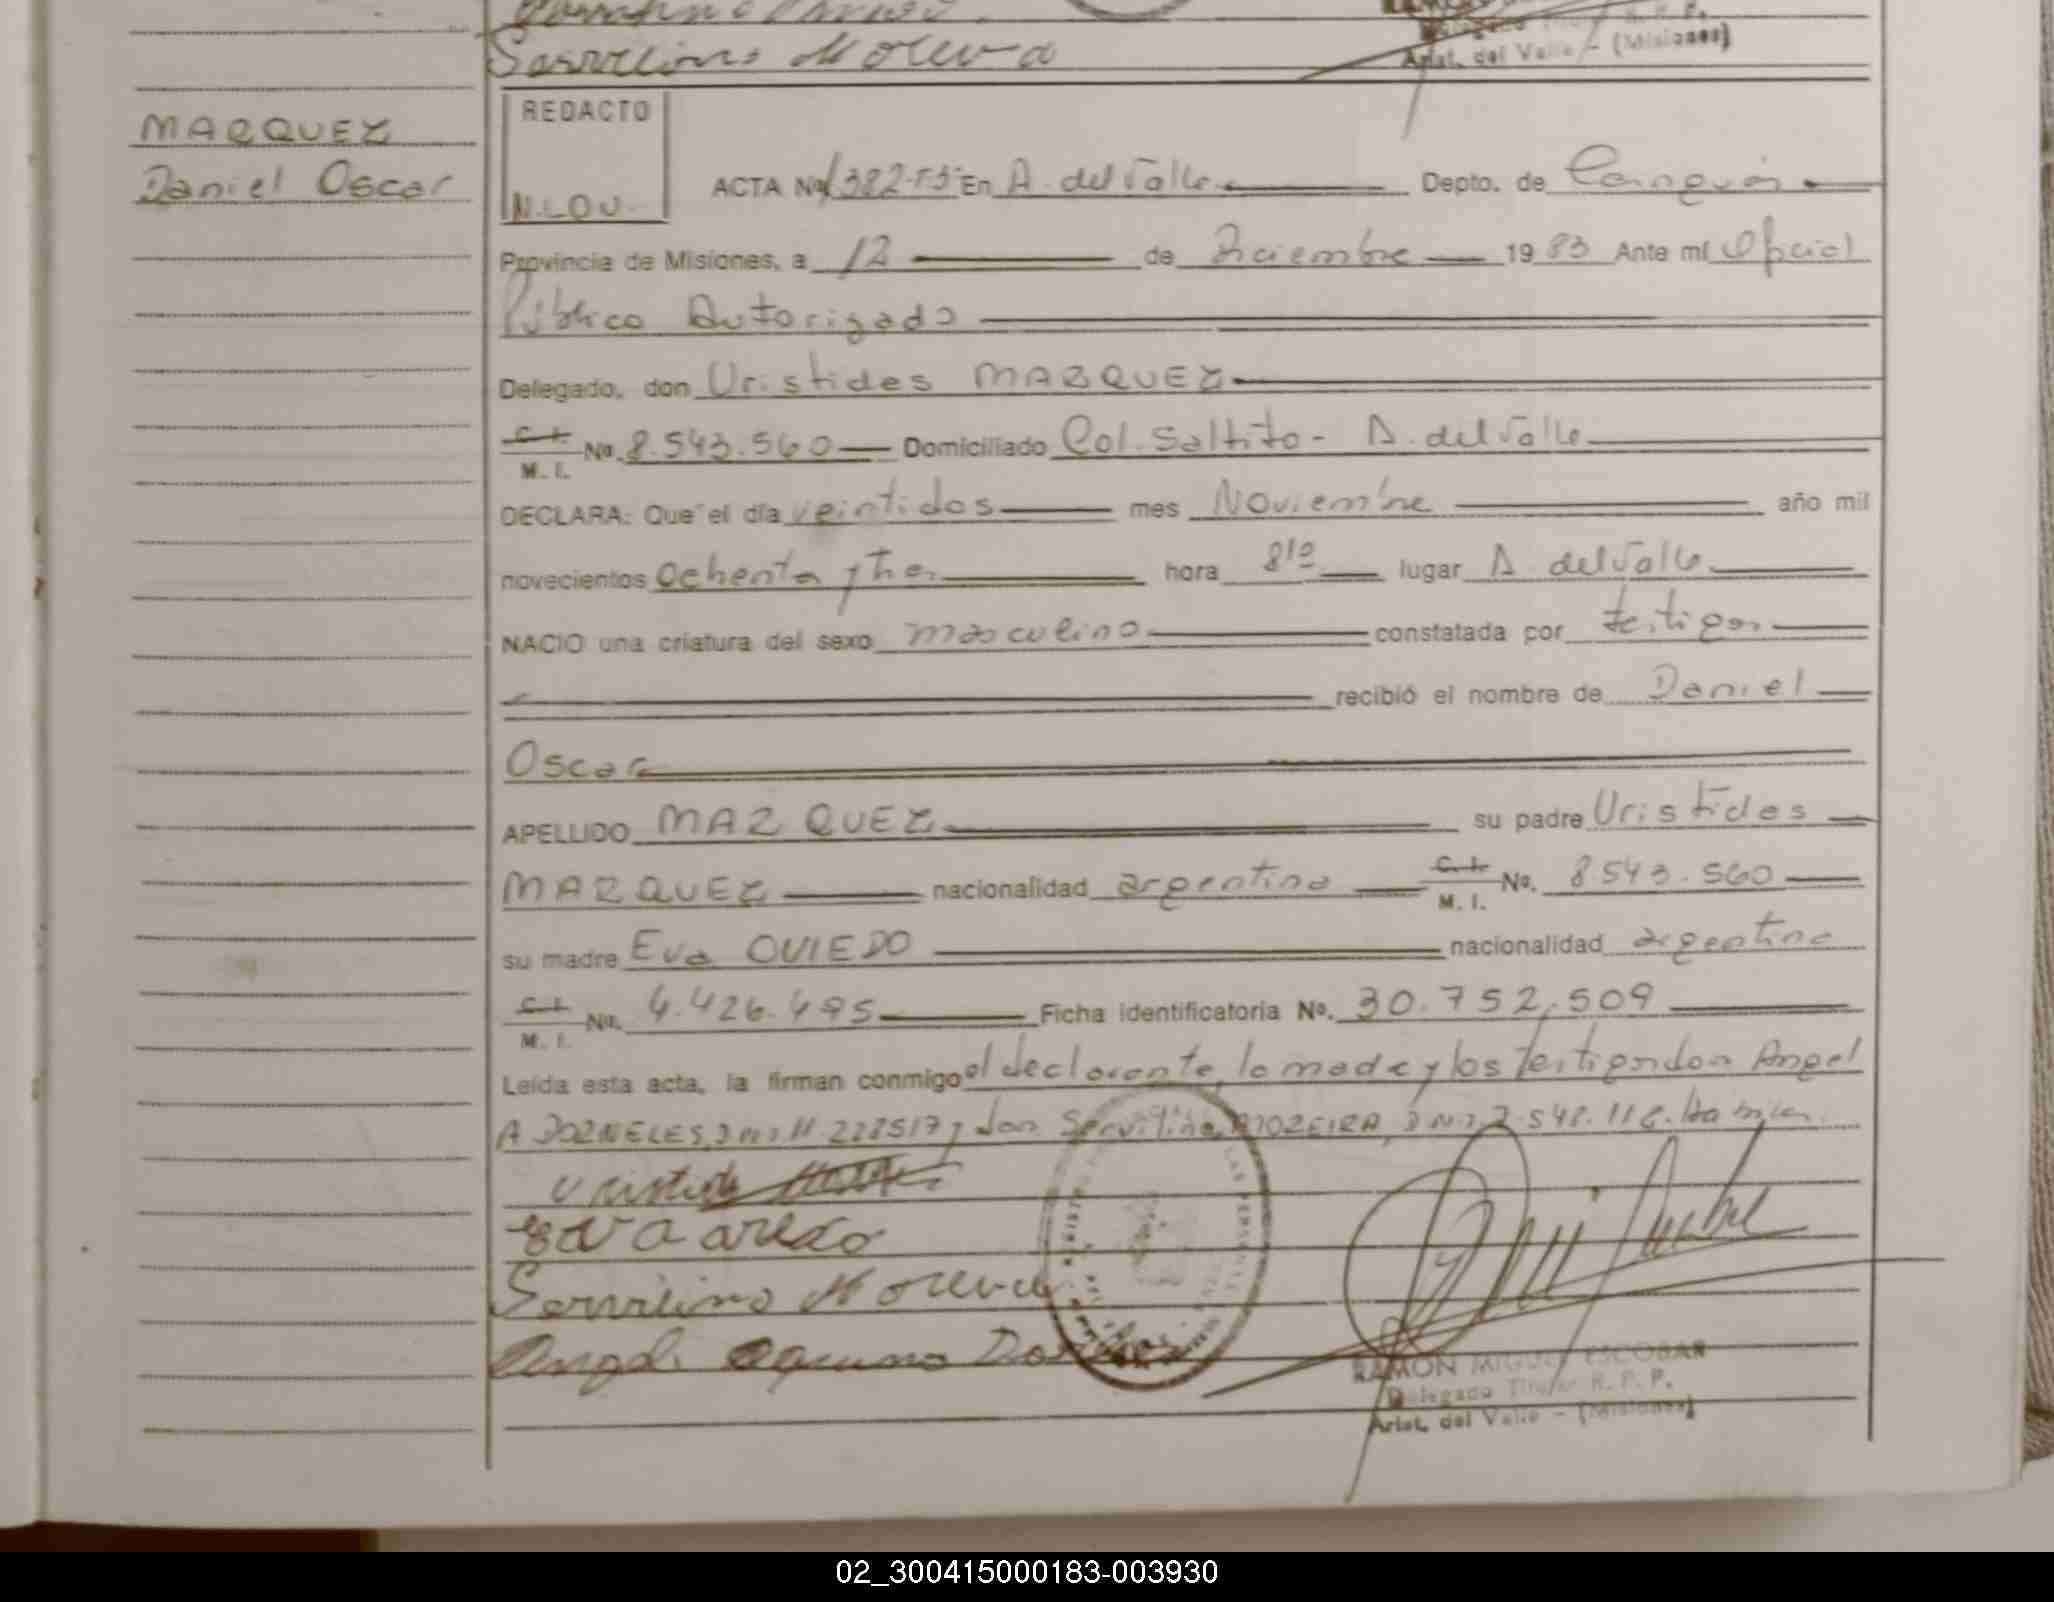 Servilino Moreira
Arist. del Valle - (Misiones)
MARQUEZ
Daniel Oscar
REDACTO
N.L.O.U.
ACTA No 1382-T3- En A. del Valle Depto. de Cainguás
Provincia de Misiones, a 12 de Diciembre 1983 Ante mí Oficial
Público Autorizado
Delegado, don Uristides MARQUEZ
C. I. M. I. No. 8.543.560 Domiciliado Col. Saltito - A. del Valle
DECLARA: Que el día veintidos mes Noviembre año mil
novecientos ochenta y tres hora 8:10 lugar A. del Valle
NACIO una criatura del sexo masculino constatada por testigos
recibió el nombre de Daniel
Oscar
APELLIDO MARQUEZ su padre Uristides
MARQUEZ nacionalidad argentina C. I. M. I. No. 8543.560
su madre Eva OVIEDO nacionalidad argentina
C. I. M. I. No. 4.426.495 Ficha identificatoria No. 30.752.509
Leída esta acta, la firman conmigo el declarante, la madre y los testigos don Angel
A DORNELES, y don Servilino MOREIRA,
Uristides
Servilino Moreira
Angel Aquino
RAMON MIGUEL ESCOBAR
Delegado Titular R. P. P.
Arist. del Valle - (Misiones)
02_300415000183-003930